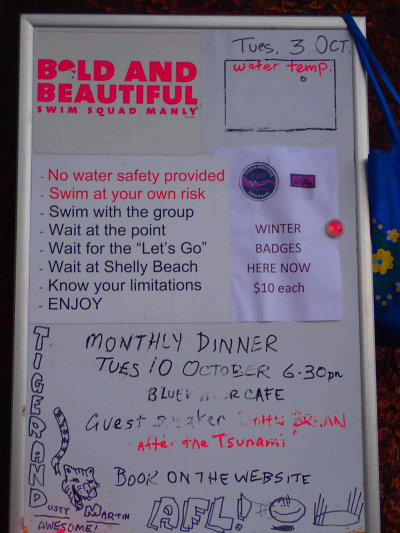 BOLD AND
BEAUTIFUL
SWIM SQUAD MANLY
Tues, 3 OCT.
water temp.
- No water safety provided
- Swim at your own risk
- Swim with the group
- Wait at the point
- Wait for the “Let's Go”
- Wait at Shelly Beach
- Know your limitations
- ENJOY
WINTER
BADGES
HERE NOW
$10 each
MONTHLY DINNER
TUES 10 OCTOBER 6.30pm
CAFE
Guest speaker
After the Tsunami
BOOK ON THE WEBSITE
TIGERLAND
DUSTY MARTIN
AWESOME!
AFL!